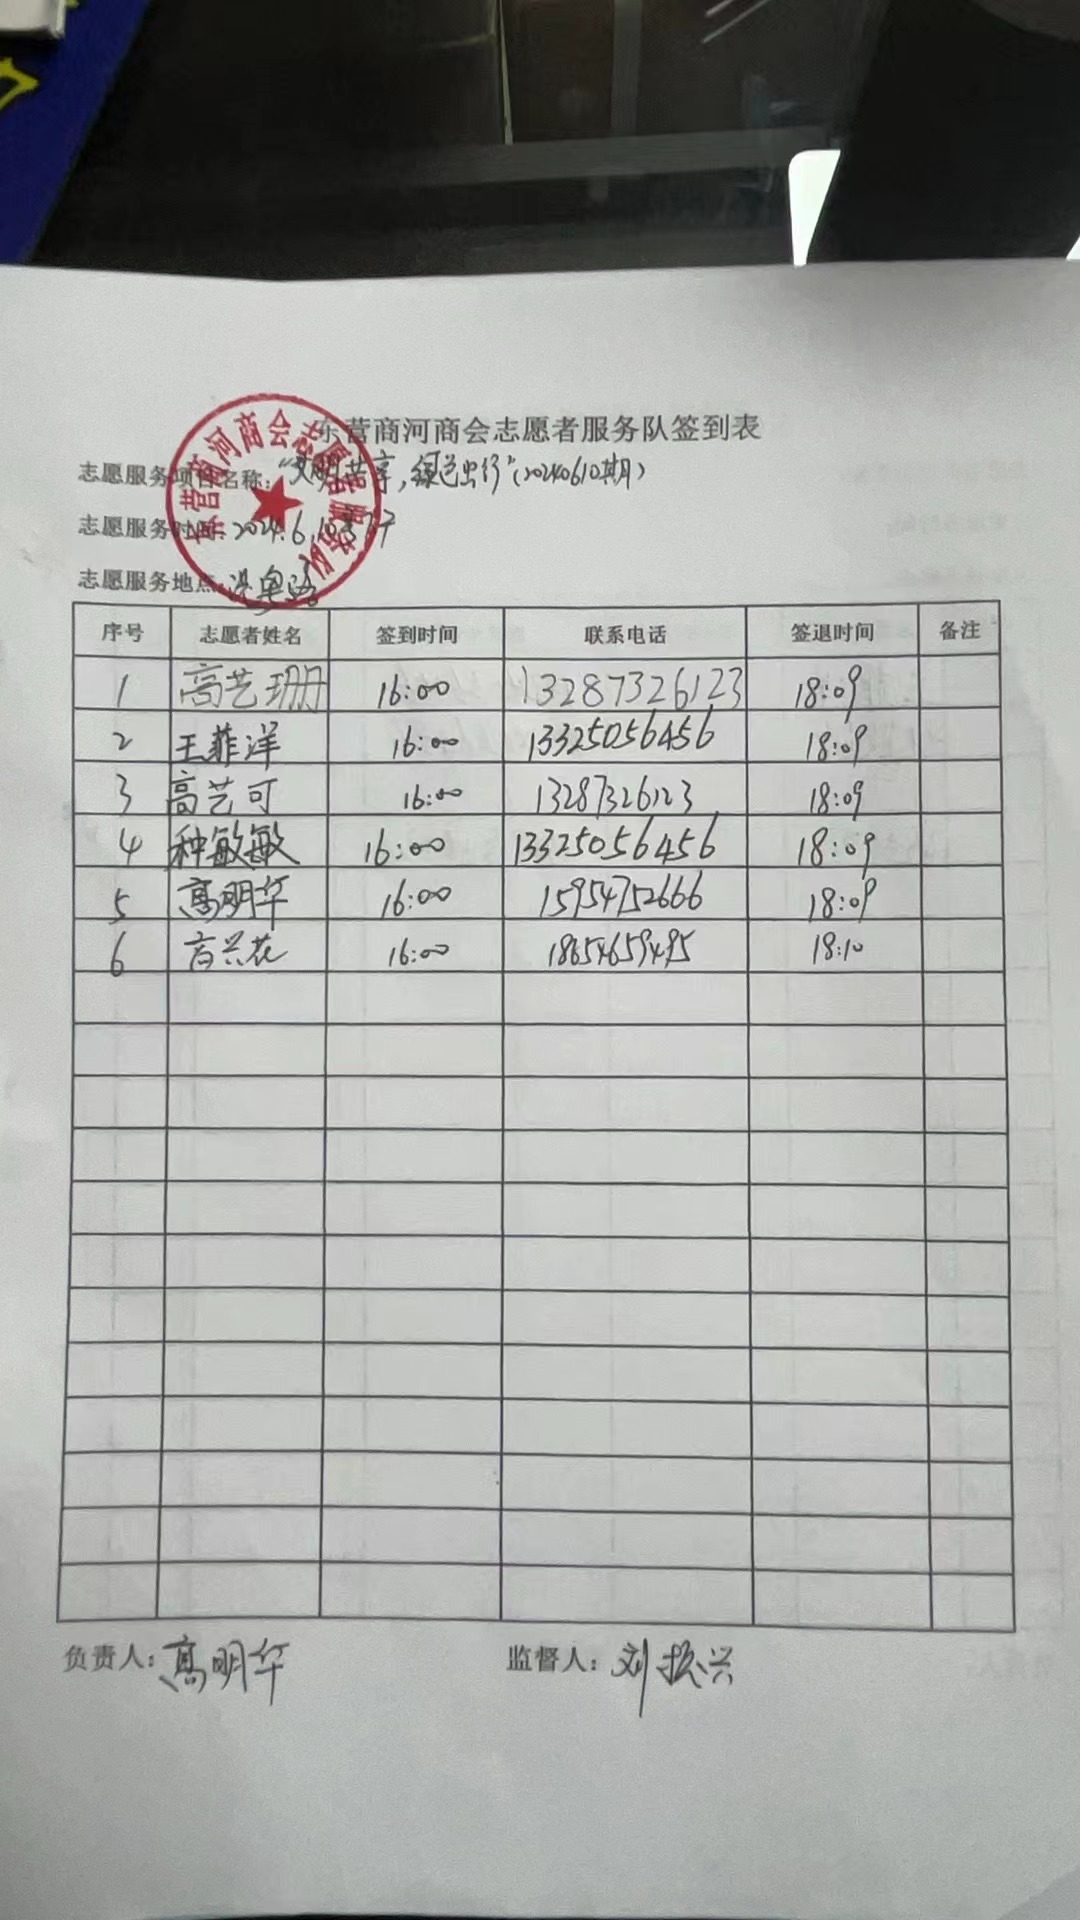 东营商河商会志愿者服务队签到表
志愿服务项目名称："文明共享，绿色出行"（20240610期）
志愿服务时间：2024.6.10
志愿服务地点：
东营商河商会志愿者服务队
序号 志愿者姓名 签到时间 联系电话 签退时间 备注
1 高艺珊 16:00 13287326123 18:09
2 王菲洋 16:00 13325056456 18:09
3 高艺可 16:00 13287326123 18:09
4 种敏敏 16:00 13325056456 18:09
5 高明华 16:00 15954752666 18:09
6 高兴花 16:00 18654659495 18:10
负责人：高明华 监督人：刘振兴